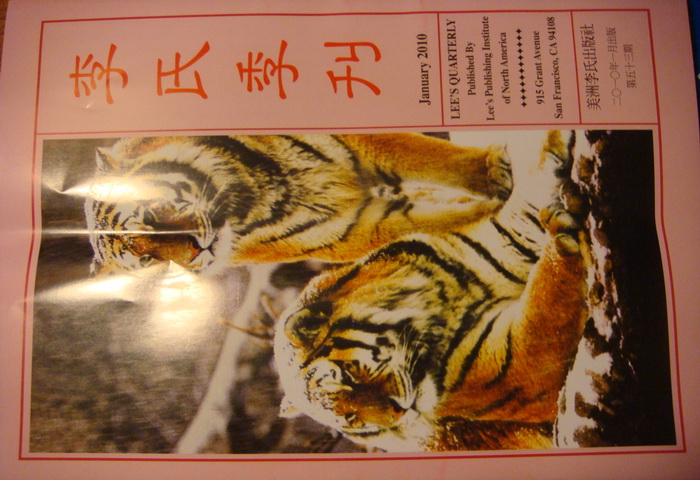 李氏季刊
January 2010
LEE'S QUARTERLY
Published By
Lee's Publishing Institute
of North America
915 Grant Avenue
San Francisco, CA 94108
美洲李氏出版社
二〇一〇年一月出版
第五十三期